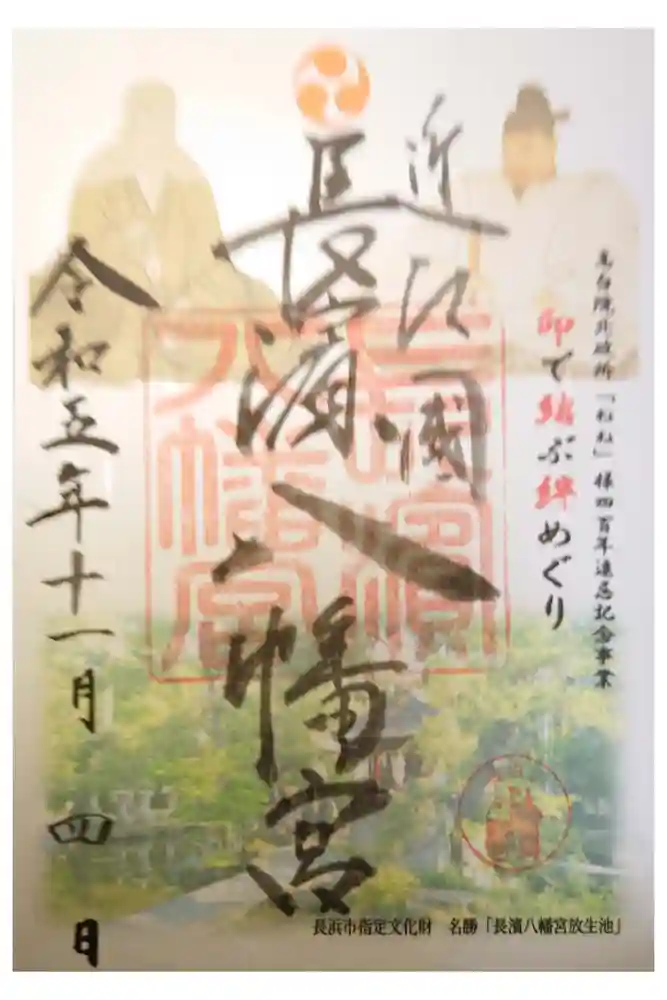 高台院北政所「ねね」様四百年遠忌記念事業
印で結ぶ絆めぐり
近江國
長濱八幡宮
長濱
八幡宮
令和五年十一月四日
長浜市指定文化財　名勝「長濱八幡宮放生池」